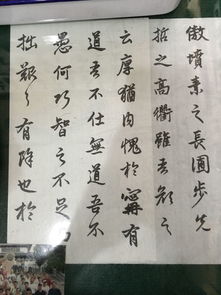 傲墳素之長圃步先
哲之高衢雖吾顏之
云厚猶内愧於甯有
道吾不仕無道吾不
愚何巧智之不足
拙艱之有餘也於